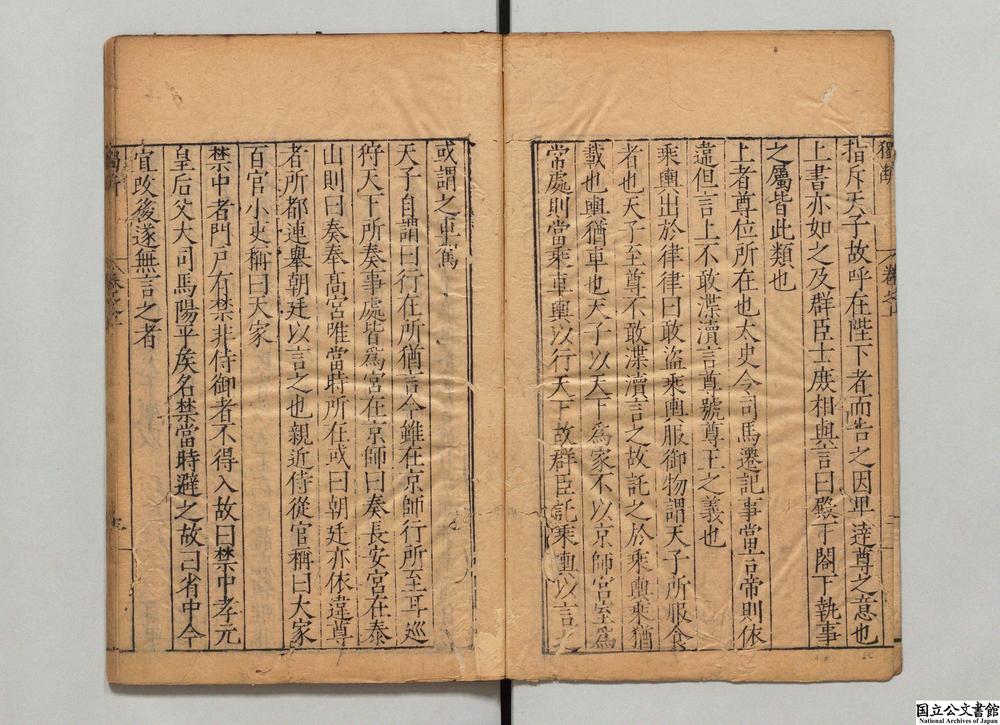 獨斷 卷之上
指斥天子故呼在陛下者而告之因卑達尊之意也
上書亦如之及群臣士庶相與言曰殿下閣下執事
之屬皆此類也
上者尊位所在也太史令司馬遷記事當言帝則依
違但言上不敢渫瀆言尊號尊王之義也
乘輿出於律律曰敢盜乘輿服御物謂天子所服食
者也天子至尊不敢渫瀆言之故託之於乘輿乘猶
載也輿猶車也天子以天下爲家不以京師宮室爲
常處則當乘車輿以行天下故群臣託乘輿以言之
或謂之車駕
天子自謂曰行在所猶言今雖在京師行所至耳巡
狩天下所奏事處皆爲宮在京師曰奏長安宮在泰
山則曰奏奉高宮唯當時所在或曰朝廷亦依違尊
者所都連舉朝廷以言之也親近侍從官稱曰大家
百官小吏稱曰天家
禁中者門戶有禁非侍御者不得入故曰禁中孝元
皇后父大司馬陽平侯名禁當時避之故曰省中今
宜改後遂無言之者
獨斷 卷之上
国立公文書館
National Archives of Japan